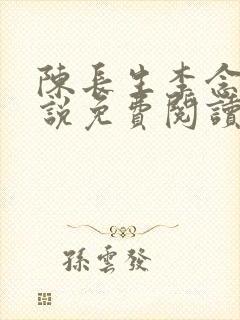 陳長生李念
說免費閱讀
孫雲發